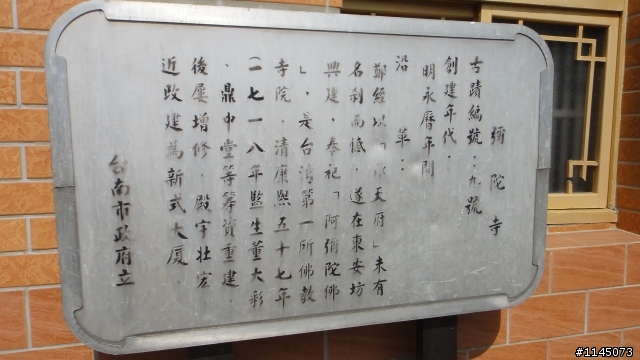 彌陀寺
古蹟編號：九號
創建年代：
明永曆年間
沿革：
鄭經以「承天府」未有
名刹而憾，遂在東安坊
興建，奉祀「阿彌陀佛
」，是台灣第一所佛教
寺院，清康熙五十七年
（一七一八年監生董大彩
，鼎中堂等籌資重建，
後屢增修，殿宇壯宏
近改建為新式大廈。
台南市政府立
#1145073